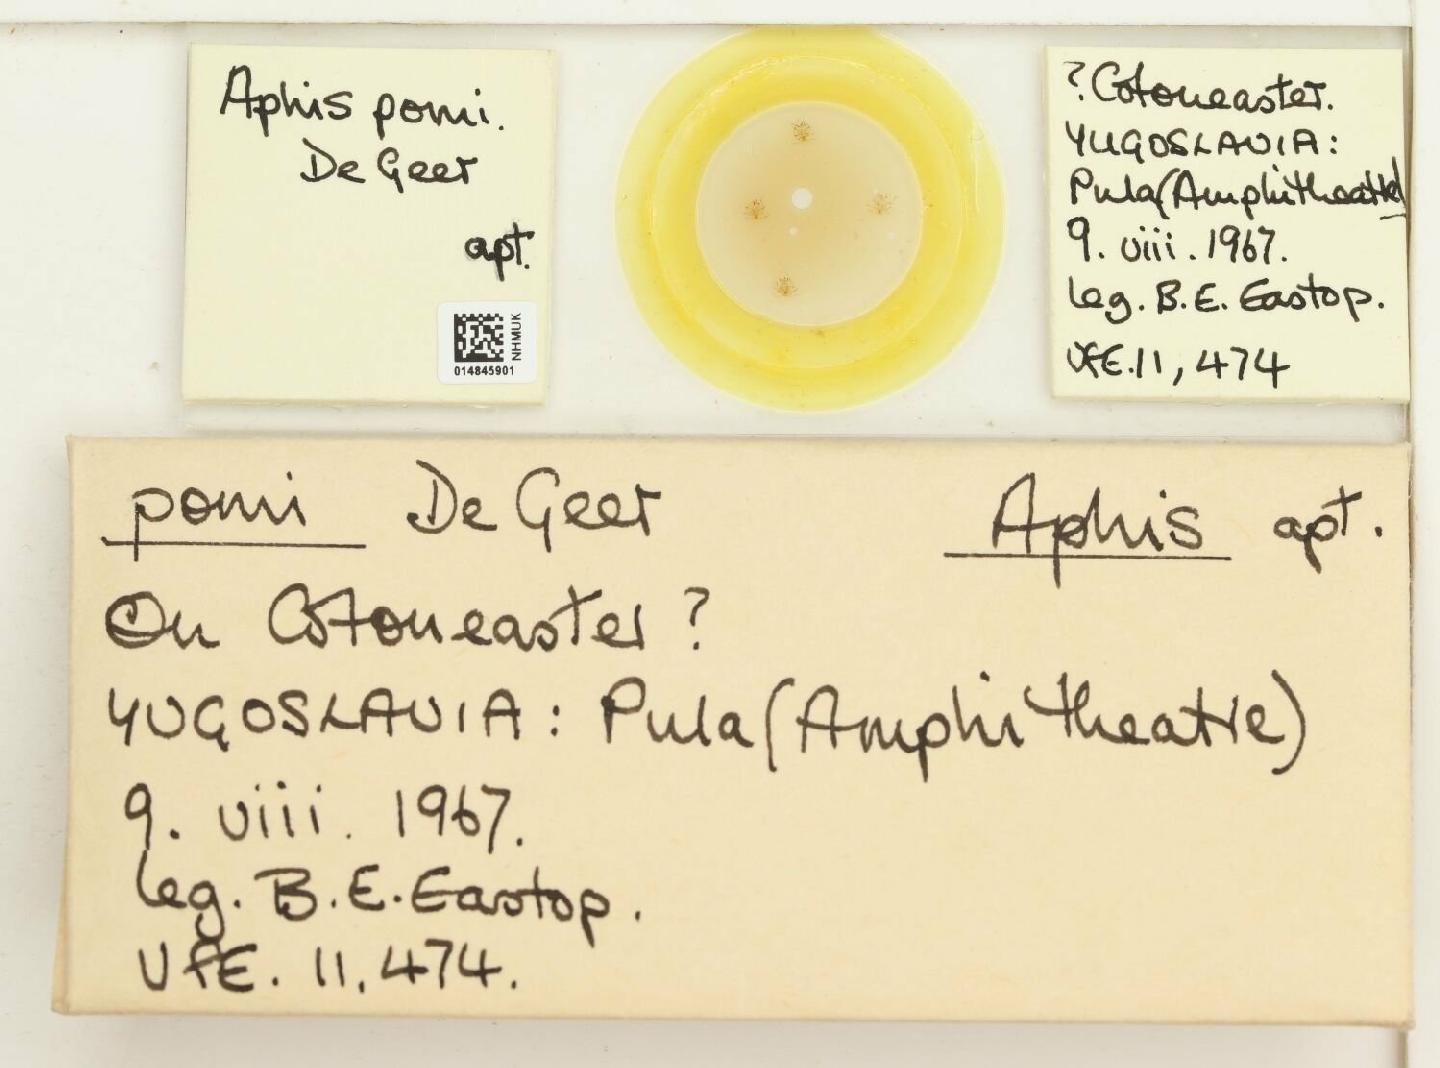 Aphis pomi.
De Geer
apt.
NHMUK
014845901
? Cotoneaster.
YUGOSLAVIA:
Pula (Amphitheatre)
9. viii. 1967.
leg. B.E. Eastop.
VFE. 11, 474
pomi De Geer Aphis apt.
On Cotoneaster ?
YUGOSLAVIA: Pula (Amphitheatre)
9. viii. 1967.
leg. B.E. Eastop.
VFE. 11, 474.